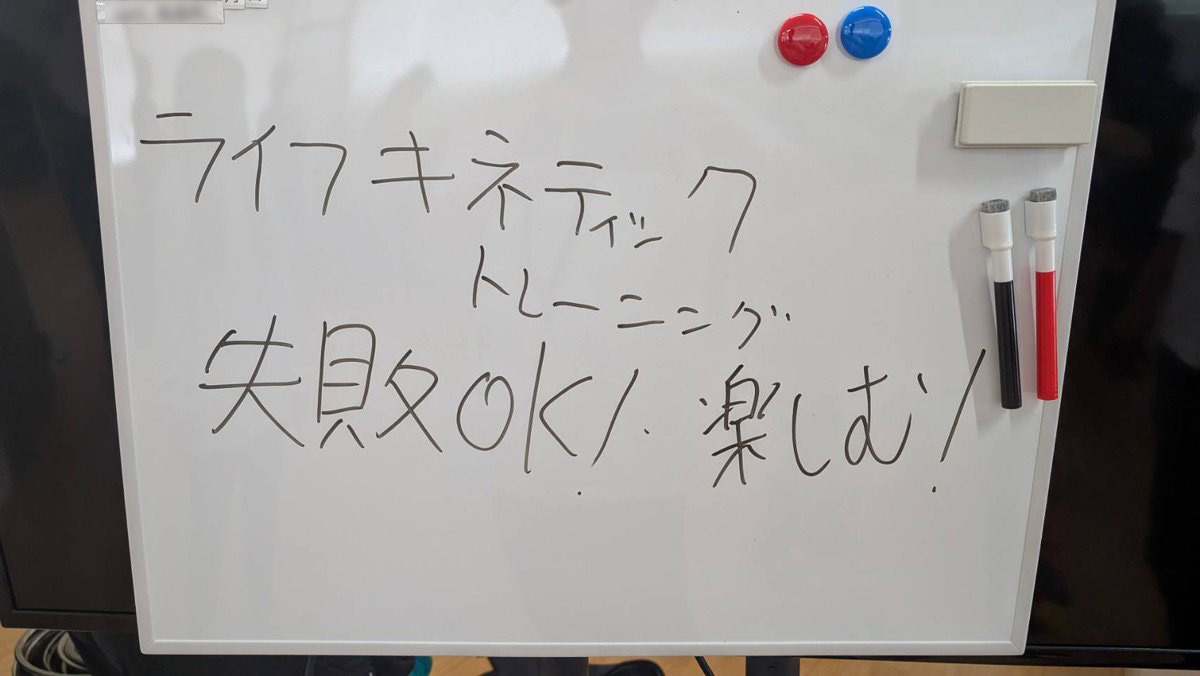 ライフキネティック
トレーニング
失敗OK! 楽しむ!